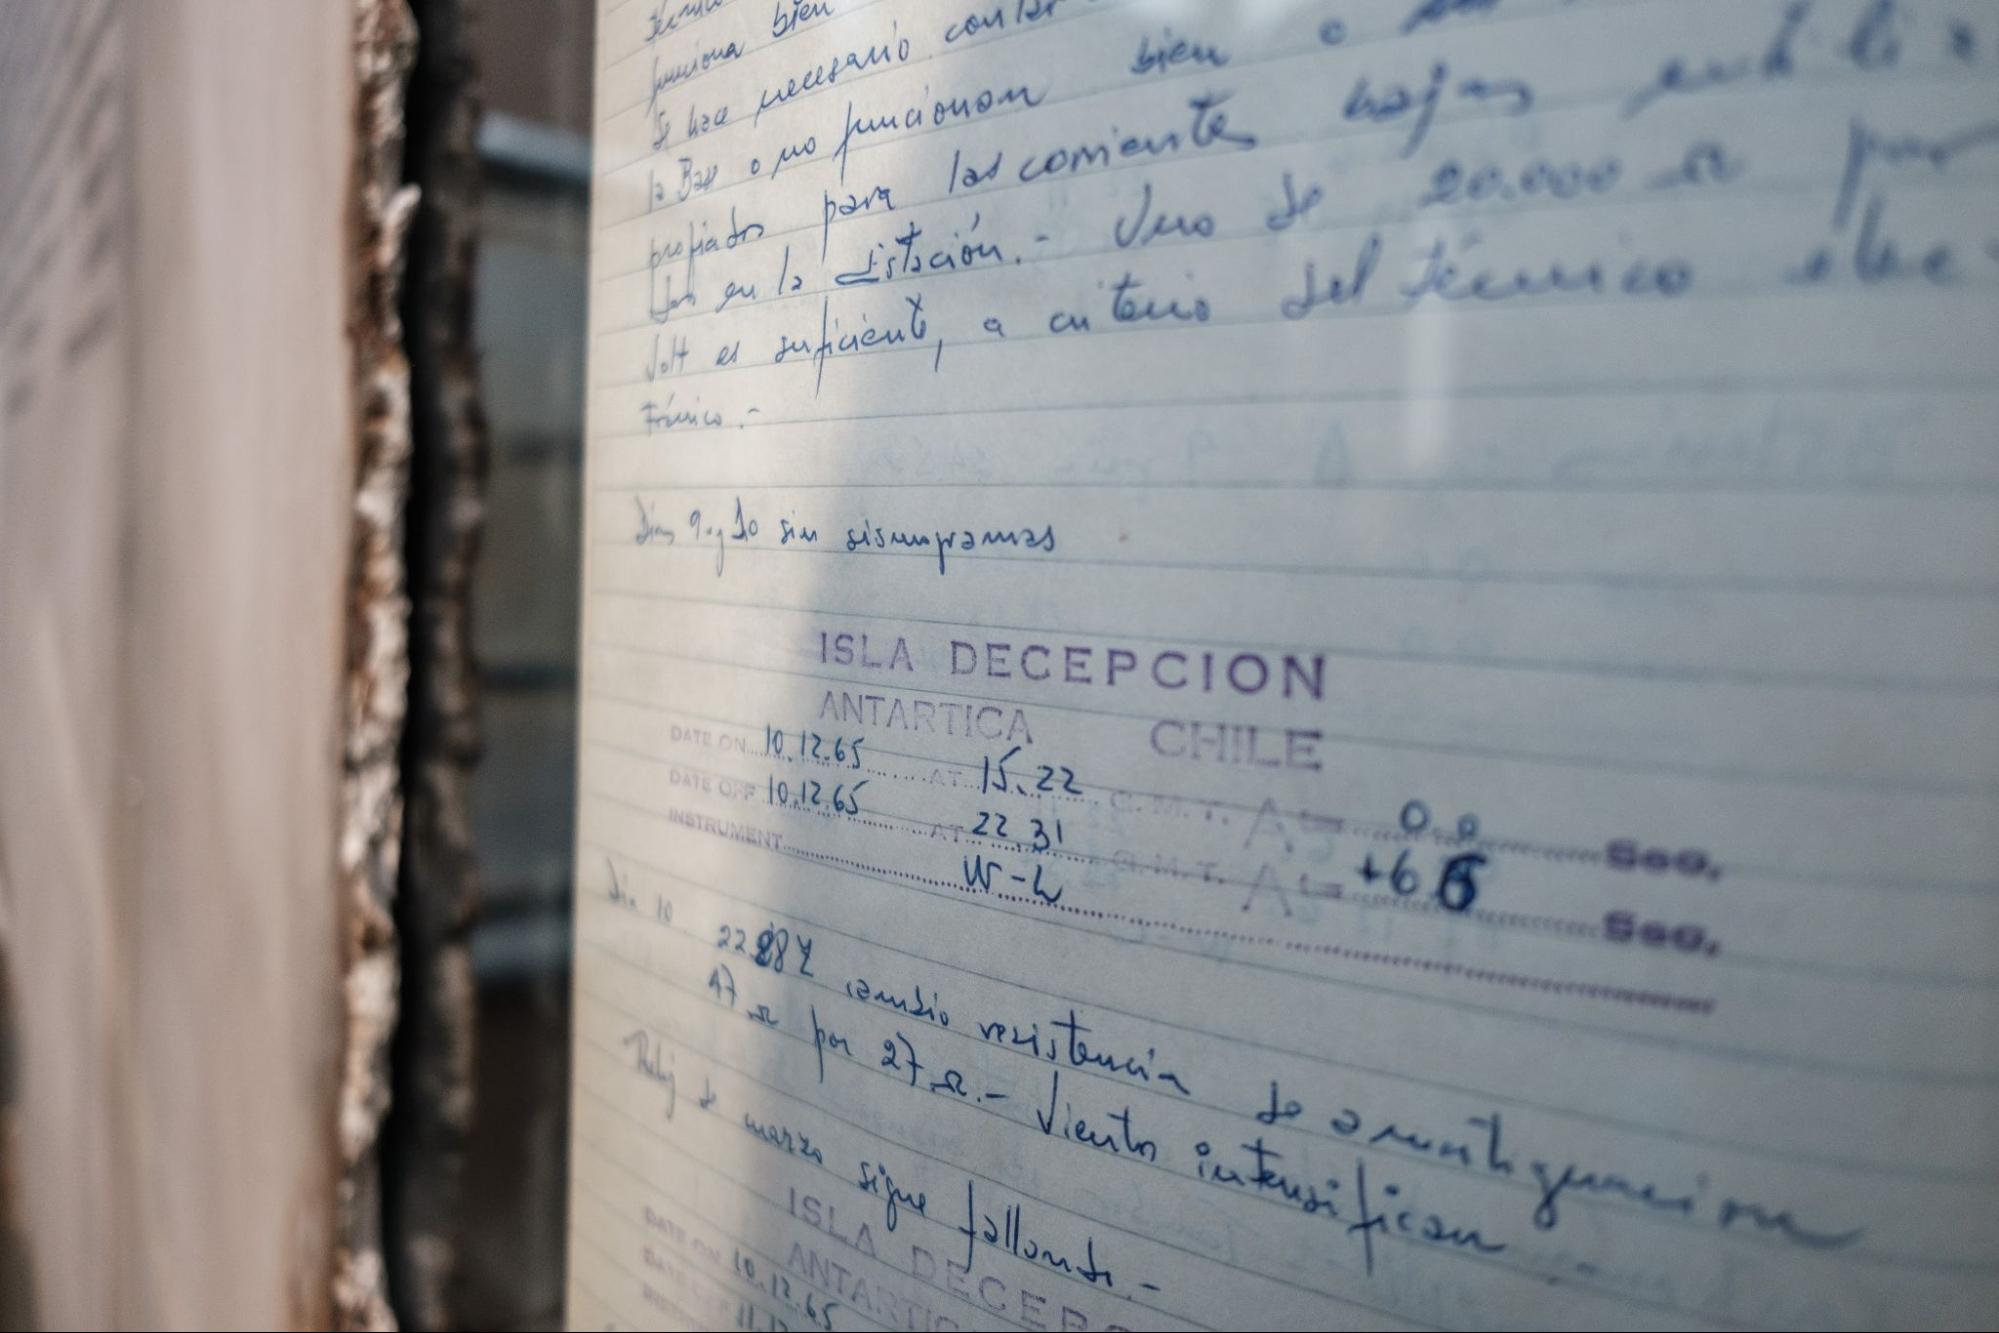 funciona bien
Se hace necesario
la Base o no funcionan bien o
para las corriente bajas
en la Estación.- Uno de 20.000 Ω por
Volt es suficiente, a criterio del técnico elec-
trónico.-
Días 9 y 10 sin sismogramas
ISLA DECEPCION
ANTARTICA CHILE
DATE ON 10.12.65 AT 15.22 G.M.T. Δt= 0.0 SeG.
DATE OFF 10.12.65 AT 22.31 G.M.T. Δt= +66 SeG.
INSTRUMENT W-L
Día 10. cambio resistencia de amortiguación
47 Ω por 27 Ω.- Vientos intensifican
Reloj de marzo sigue fallando.-
ISLA DECEP
ANTARTIC
DATE ON 10.12.65